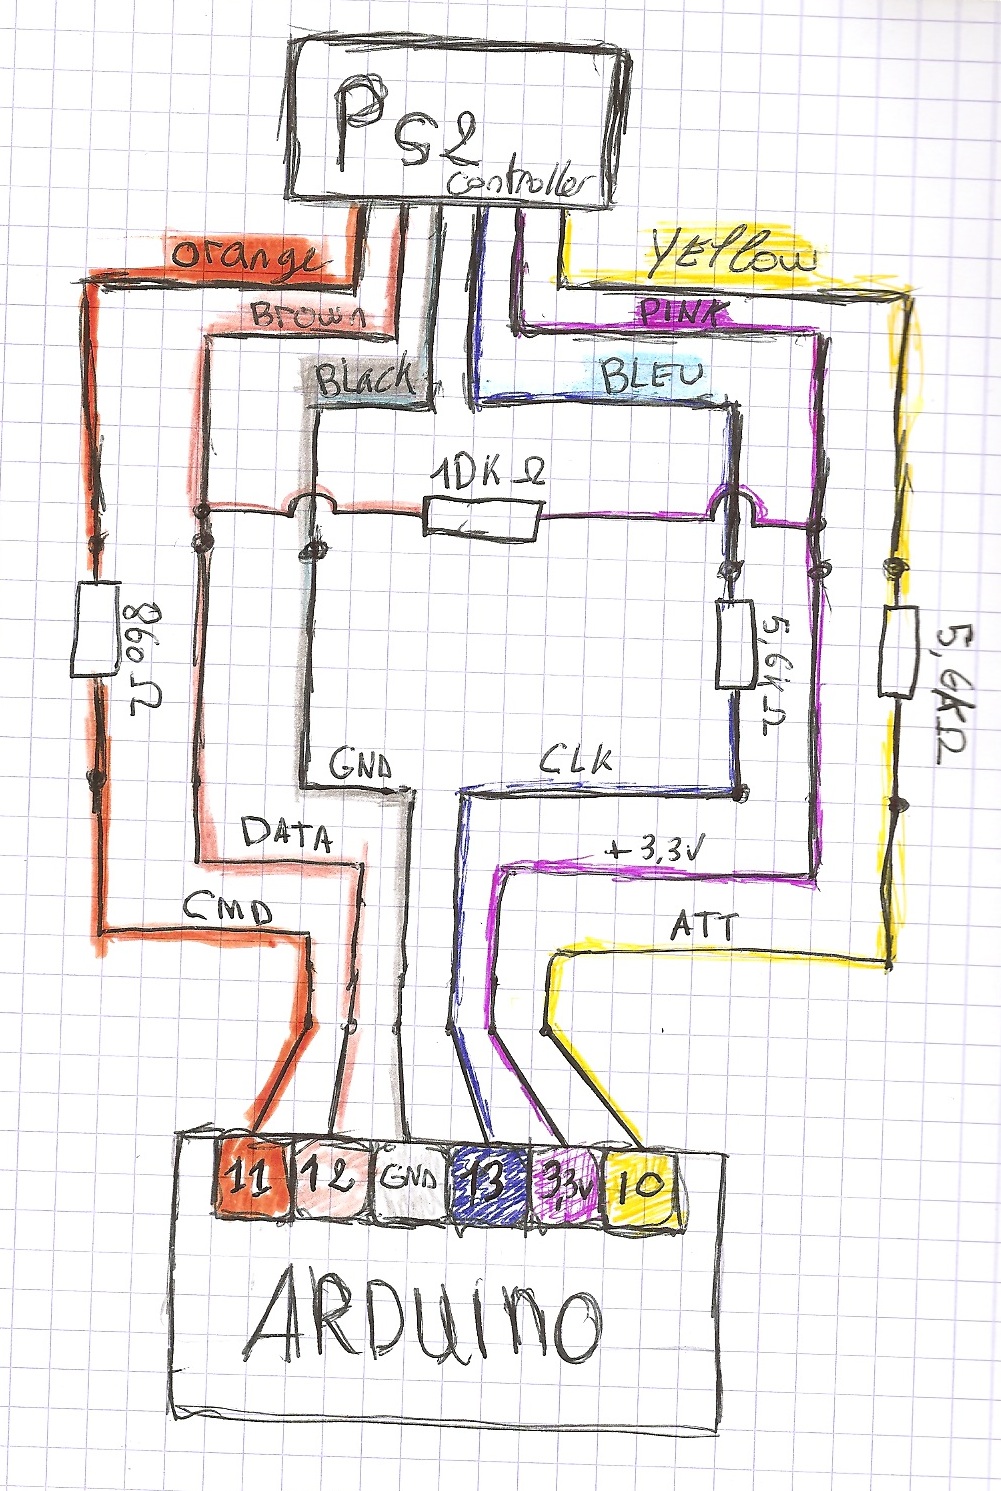 PS2
controller
orange
YEllow
Brown
PINK
BLack
BLEU
10K Ω
860Ω
5,6KΩ
5,6KΩ
GND
CLK
DATA
+3,3V
CMD
ATT
11 12 GND 13 3,3V 10
ARDuino